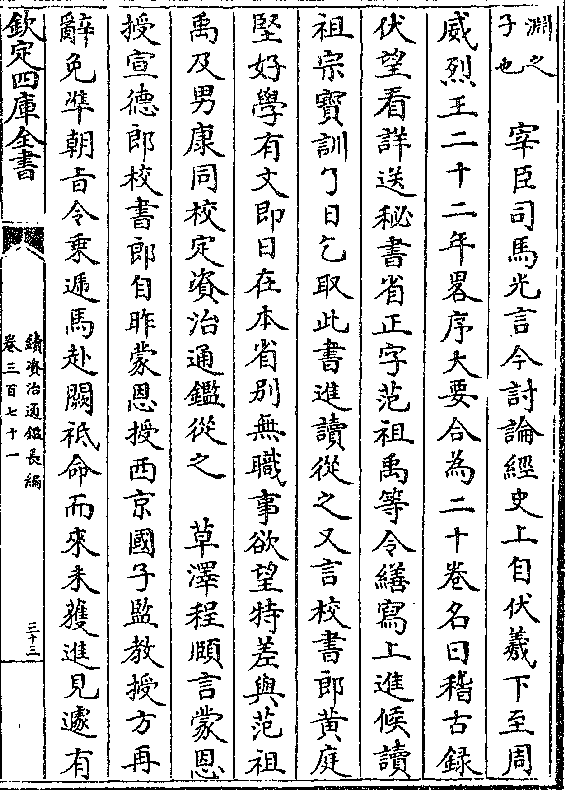 淵之
子也
宰臣司馬光言今討論經史上自伏羲下至周
威烈王二十二年畧序大要合為二十卷名曰稽古録
伏望看詳送秘書省正字范祖禹等令繕寫上進候讀
祖宗寶訓了日乞取此書進讀從之又言校書郎黄庭
堅好學有文即日在本省别無職事欲望特差與范祖
禹及男康同校定資治通鑑從之　草澤程頤言蒙恩
授宣德郎校書郎自昨蒙恩授西京國子監教授方再
辭免凖朝㫖令乗遞馬赴闕祗命而來未獲進見遽有
欽定四庫全書
續資治通鑑長編
卷三百七十一
三十三